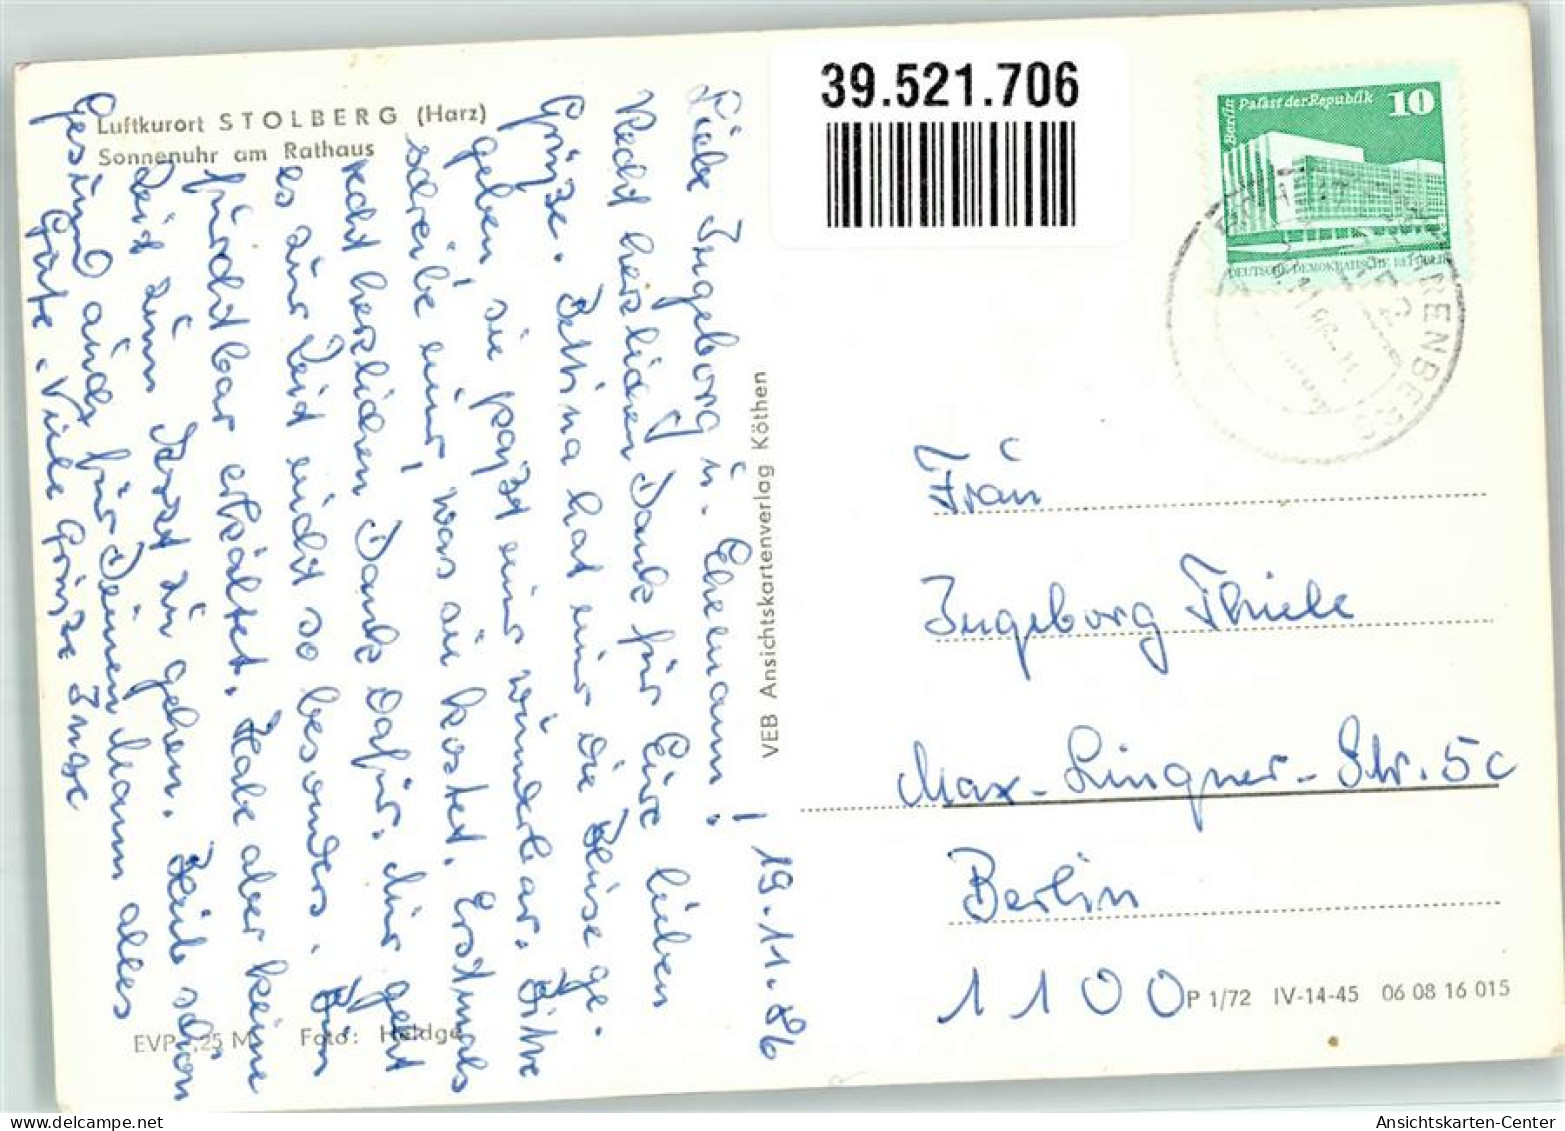 Luftkurort STOLBERG (Harz)
Sonnenuhr am Rathaus
39.521.706
Berlin Palast der Republik 10
DEUTSCHE DEMOKRATISCHE REPUBLIK
19.11.86
Liebe Ingeborg u. Ehemann!
Recht herzlichen Dank für Eure lieben
Grüße. Bettina hat mir die Bluse ge.
geben, sie paßt mir wunderbar. Bitte
schreibe mir, was sie kostet. Erstmals
recht herzlichen Dank dafür. Mir geht
es zur Zeit nicht so besonders. Bin
fürchtbar erkältet. Habe aber keine
Zeit zum Arzt zu gehen. Bleib schön
Gesund auch für Deinen Mann alles
Gute. Viele Grüße Inge
EVP -,25 M Foto: Heldge
VEB Ansichtskartenverlag Köthen
Frau
Ingeborg Thiele
Max-Lingner-Str. 5c
Berlin
1100
P 1/72 IV-14-45 06 08 16 015
Ansichtskarten-Center